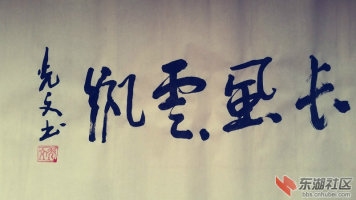 长風雲帆
光文书
东湖社区
bbs.cnhubei.com